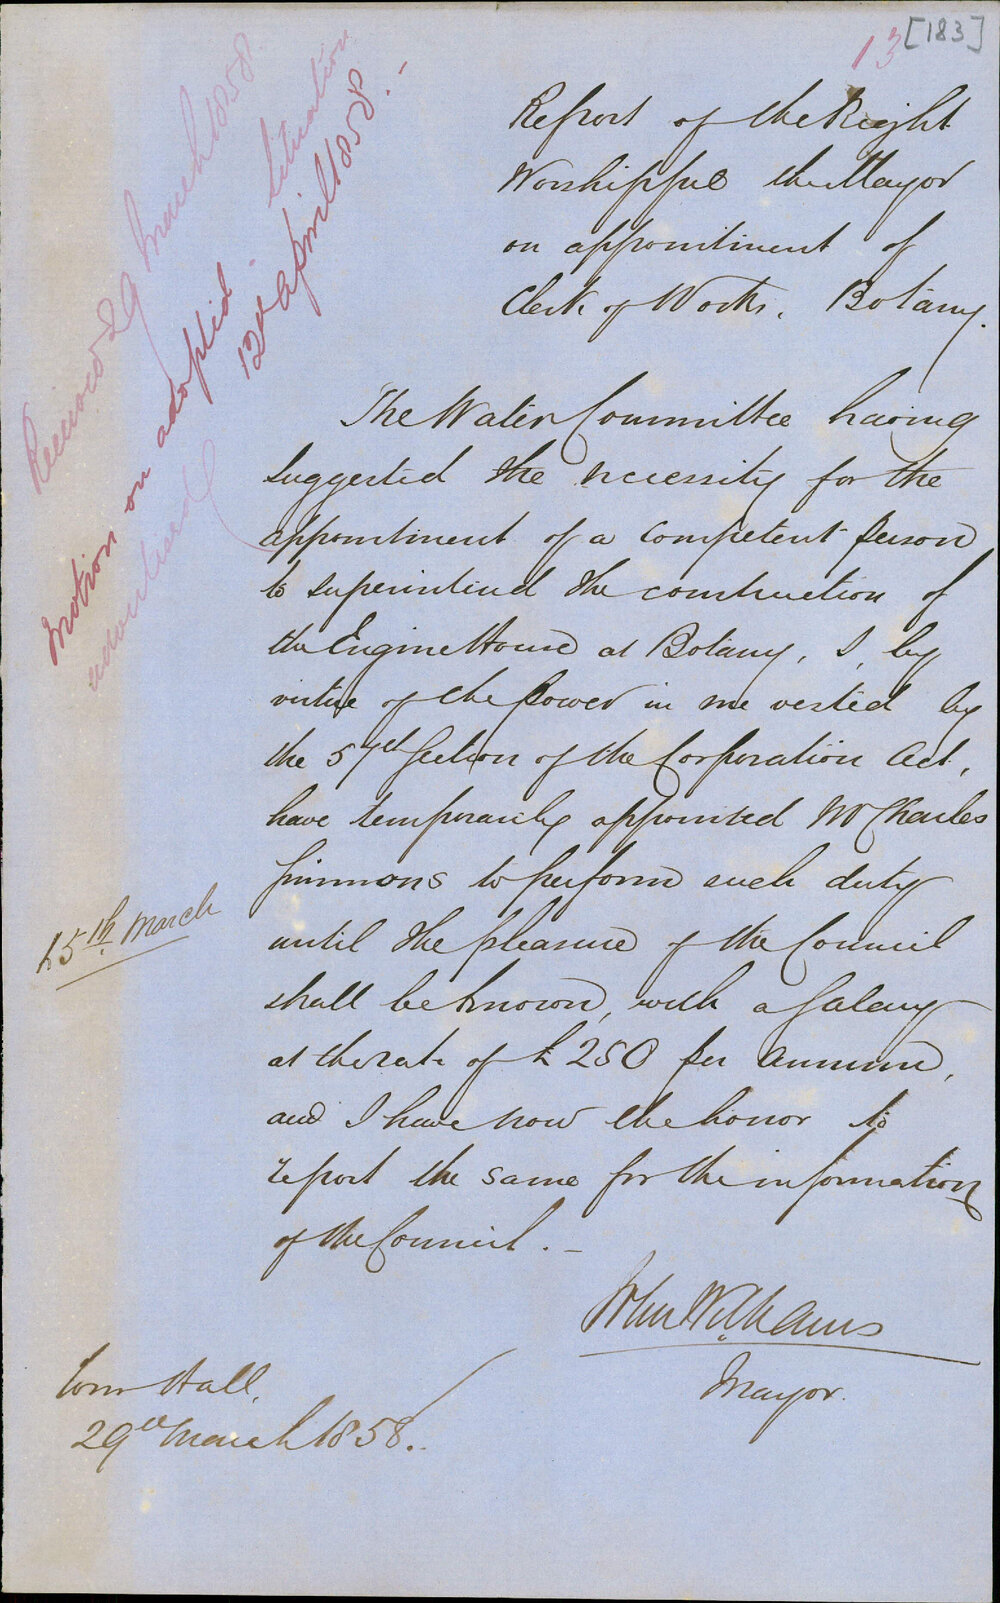 13 [183]
Report of the Right
Worshipful the Mayor
on appointment of
Clerk of Works, Botany.
Received 29 March 1858
Motion on adopted. Situation
advertised 12th April 1858.
The Water Committee having
suggested the necessity for the
appointment of a competent person
to superintend the construction of
the Engine House at Botany, I, by
virtue of the power in me vested by
the 57th Section of the Corporation Act,
have temporarily appointed Mr Charles
Simmons to perform such duty
15th March
until the pleasure of the Council
shall be known, with a Salary
at the rate of £250 per annum,
and I have now the honor to
report the same for the information
of the Council. –
John Williams
Mayor.
Town Hall,
29th March 1858.